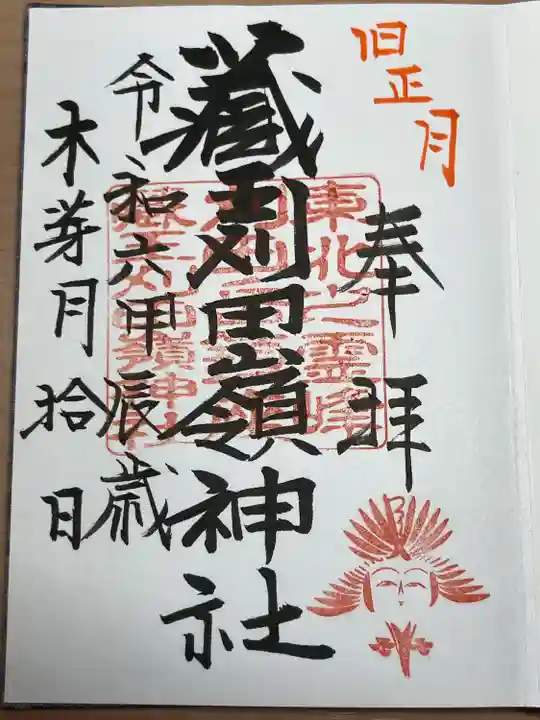 旧正月
奉拝
東北之霊峰
藏王刈田嶺神社
令和六甲辰歳
木芽月拾日